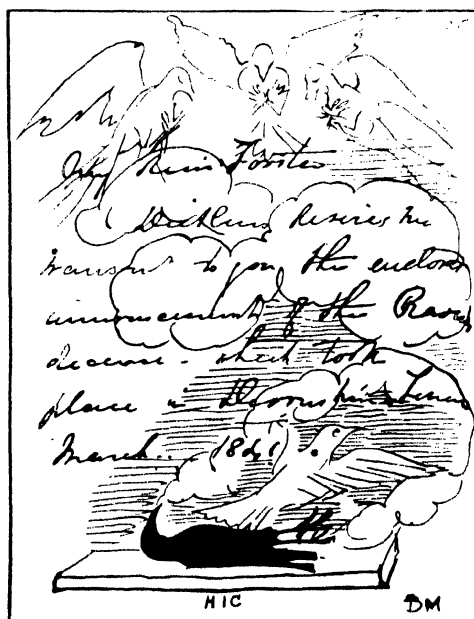 My Dear Forster
Dickens desires me
transmit to you the enclosed
announcement of the Ravens
decease - which took
place in Devonshire Terrace
March.. 1841
HIC DM